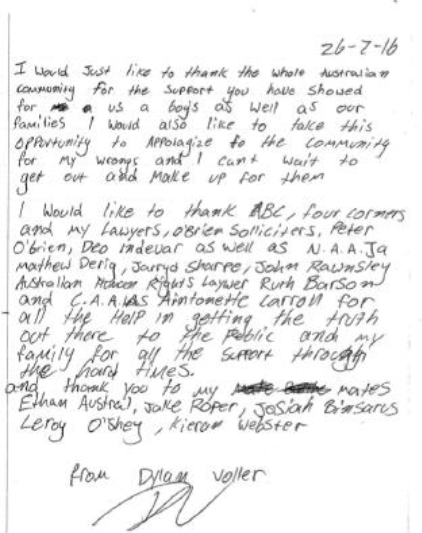 26-7-16
I would Just like to thank the whole Australian
community for the support you have showed
for us a boys as well as our
families I would also like to take this
opportunity to Appolagize to the community
for my wrongs and I cant wait to
get out and Make up for them
I would like to thank ABC, four corners
and my Lawyers, O'Brien Solliciters, Peter
O'brien, Deo indevar as well as N.A.A.Ja
Mathew Derig, Jarryd Sharpe, John Rawnsley
Australian Human Rights Laywer Ruth Barson
and C.A.A.L.A.S Aintonette Carroll for
all the Help in getting the truth
out there to the Public and my
family for all the support through
the hard times.
and thank you to my mates
Ethan Austral, Jake Roper, Josiah Binsarus
Leroy O'Shey, Kieran Webster
from Dylan Voller